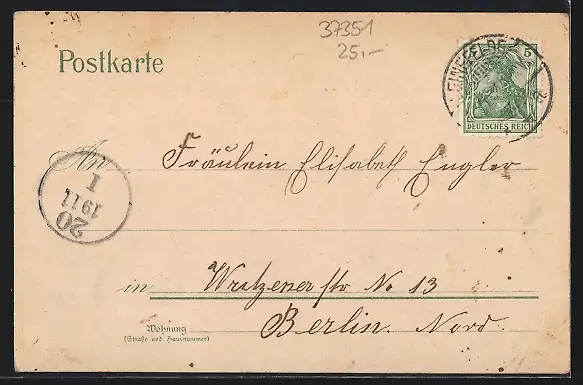 37351
25,-
Postkarte
5
DEUTSCHES REICH
An Fräulein Elisabeth Engler
20
1
1911
in Wriezener str No 13
Berlin. Nord.
Wohnung
(Straße und Hausnummer)